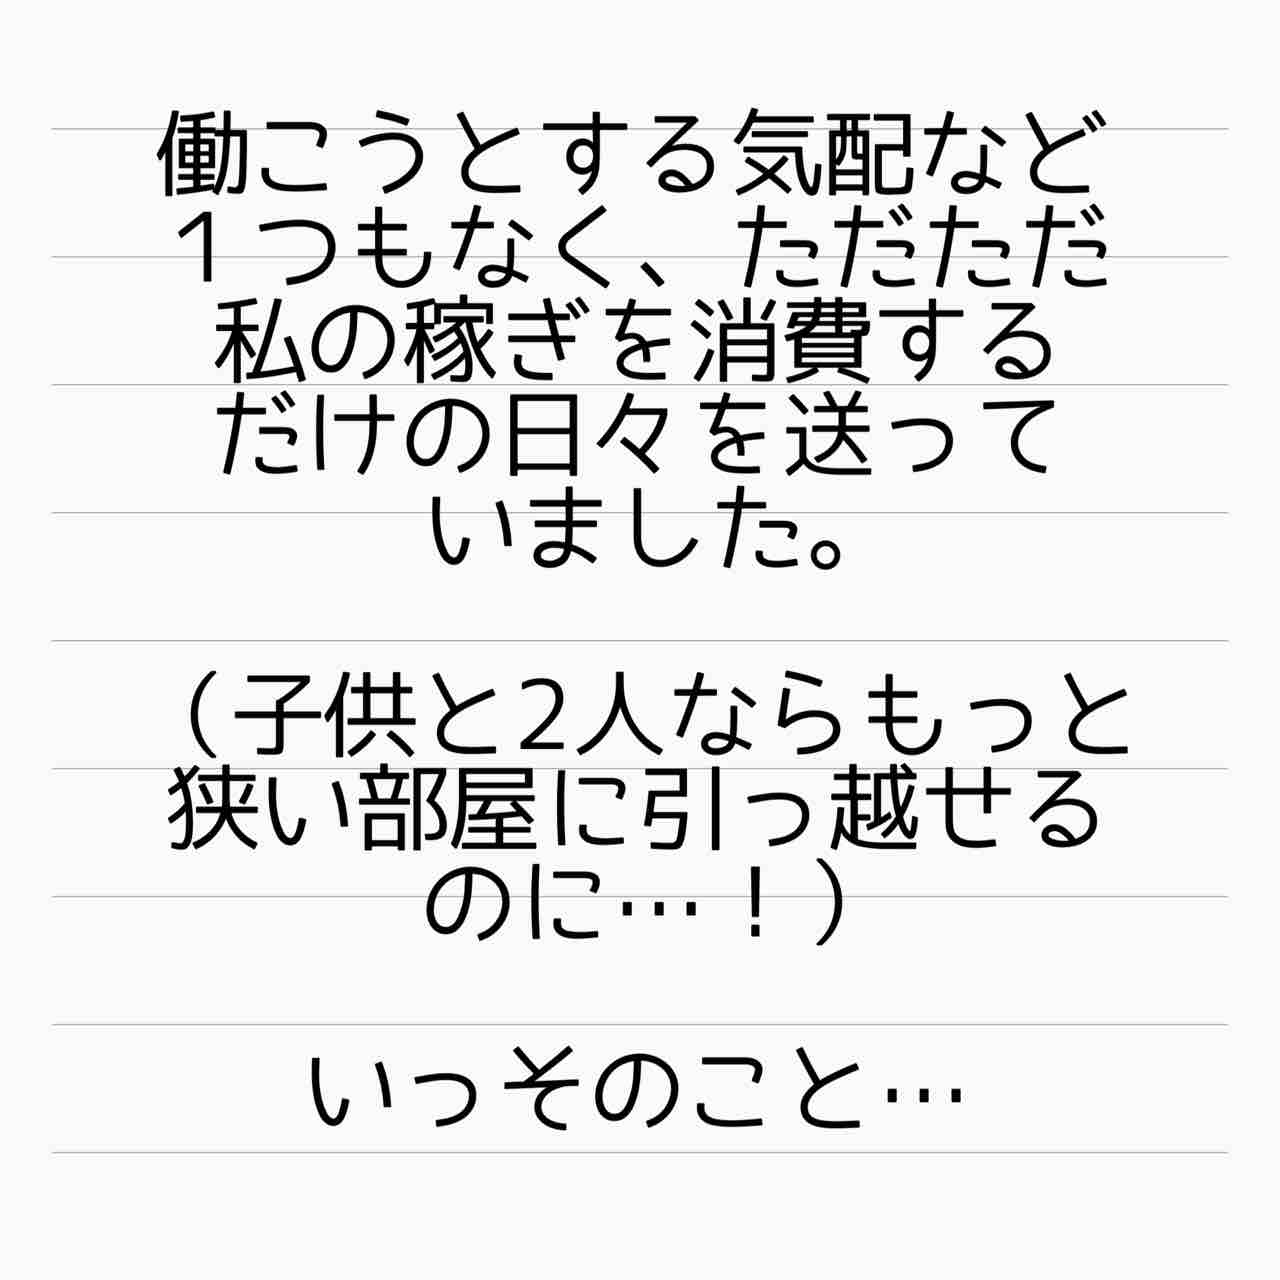 働こうとする気配など
1つもなく、ただただ
私の稼ぎを消費する
だけの日々を送って
いました。
（子供と2人ならもっと
狭い部屋に引っ越せる
のに…！）
いっそのこと…